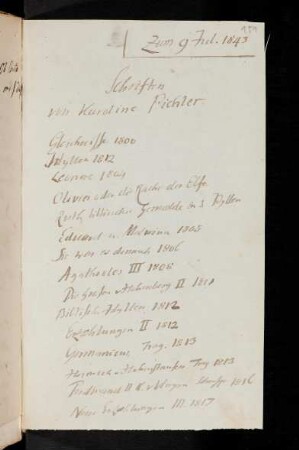 Zum 9 Jul. 1843
Schriften
von Karoline Pichler.
Gleichnisse 1800
Idyllen 1812
Leonore 1804
Olivier oder die Rache der Elfe
Ruth, biblisches Gemälde in 3 Idyllen
Eduard u. Malvina 1805
Sie war es dennoch 1806
Agathocles III 1808
Die Grafen v Hohenberg II 1811
Biblische Idyllen 1812
Erzählungen II 1812
Germanicus Trag. 1813
Heinrich v Hohenstaufen Trag 1813
Ferdinand II K. v Ungarn 1816
Neue Erzählungen III. 1817